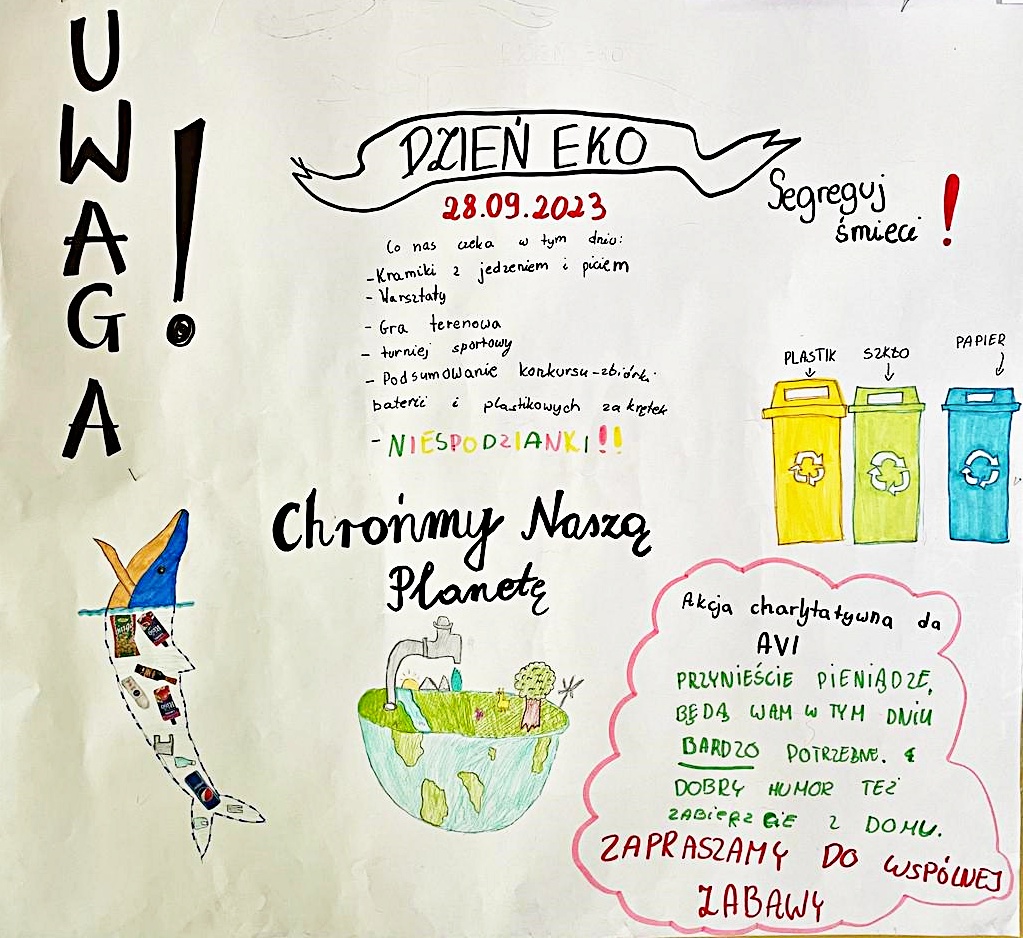 UWAGA!
DZIEŃ EKO
28.09.2023
Co nas czeka w tym dniu:
- Kramiki z jedzeniem i piciem
- Warsztaty
- Gra terenowa
- turniej sportowy
- Podsumowanie konkursu-zbiórki
baterii i plastikowych zakrętek
- NIESPODZIANKI!!!
Segreguj
śmieci!
PLASTIK
SZKŁO
PAPIER
Chrońmy Naszą
Planetę
Akcja charytatywna da
AVI
PRZYNIEŚCIE PIENIĄDZE,
BĘDĄ WAM W TYM DNIU
BARDZO POTRZEBNE. A
DOBRY HUMOR TEŻ
ZABIERZCIE Z DOMU.
ZAPRASZAMY DO WSPÓLNEJ
ZABAWY